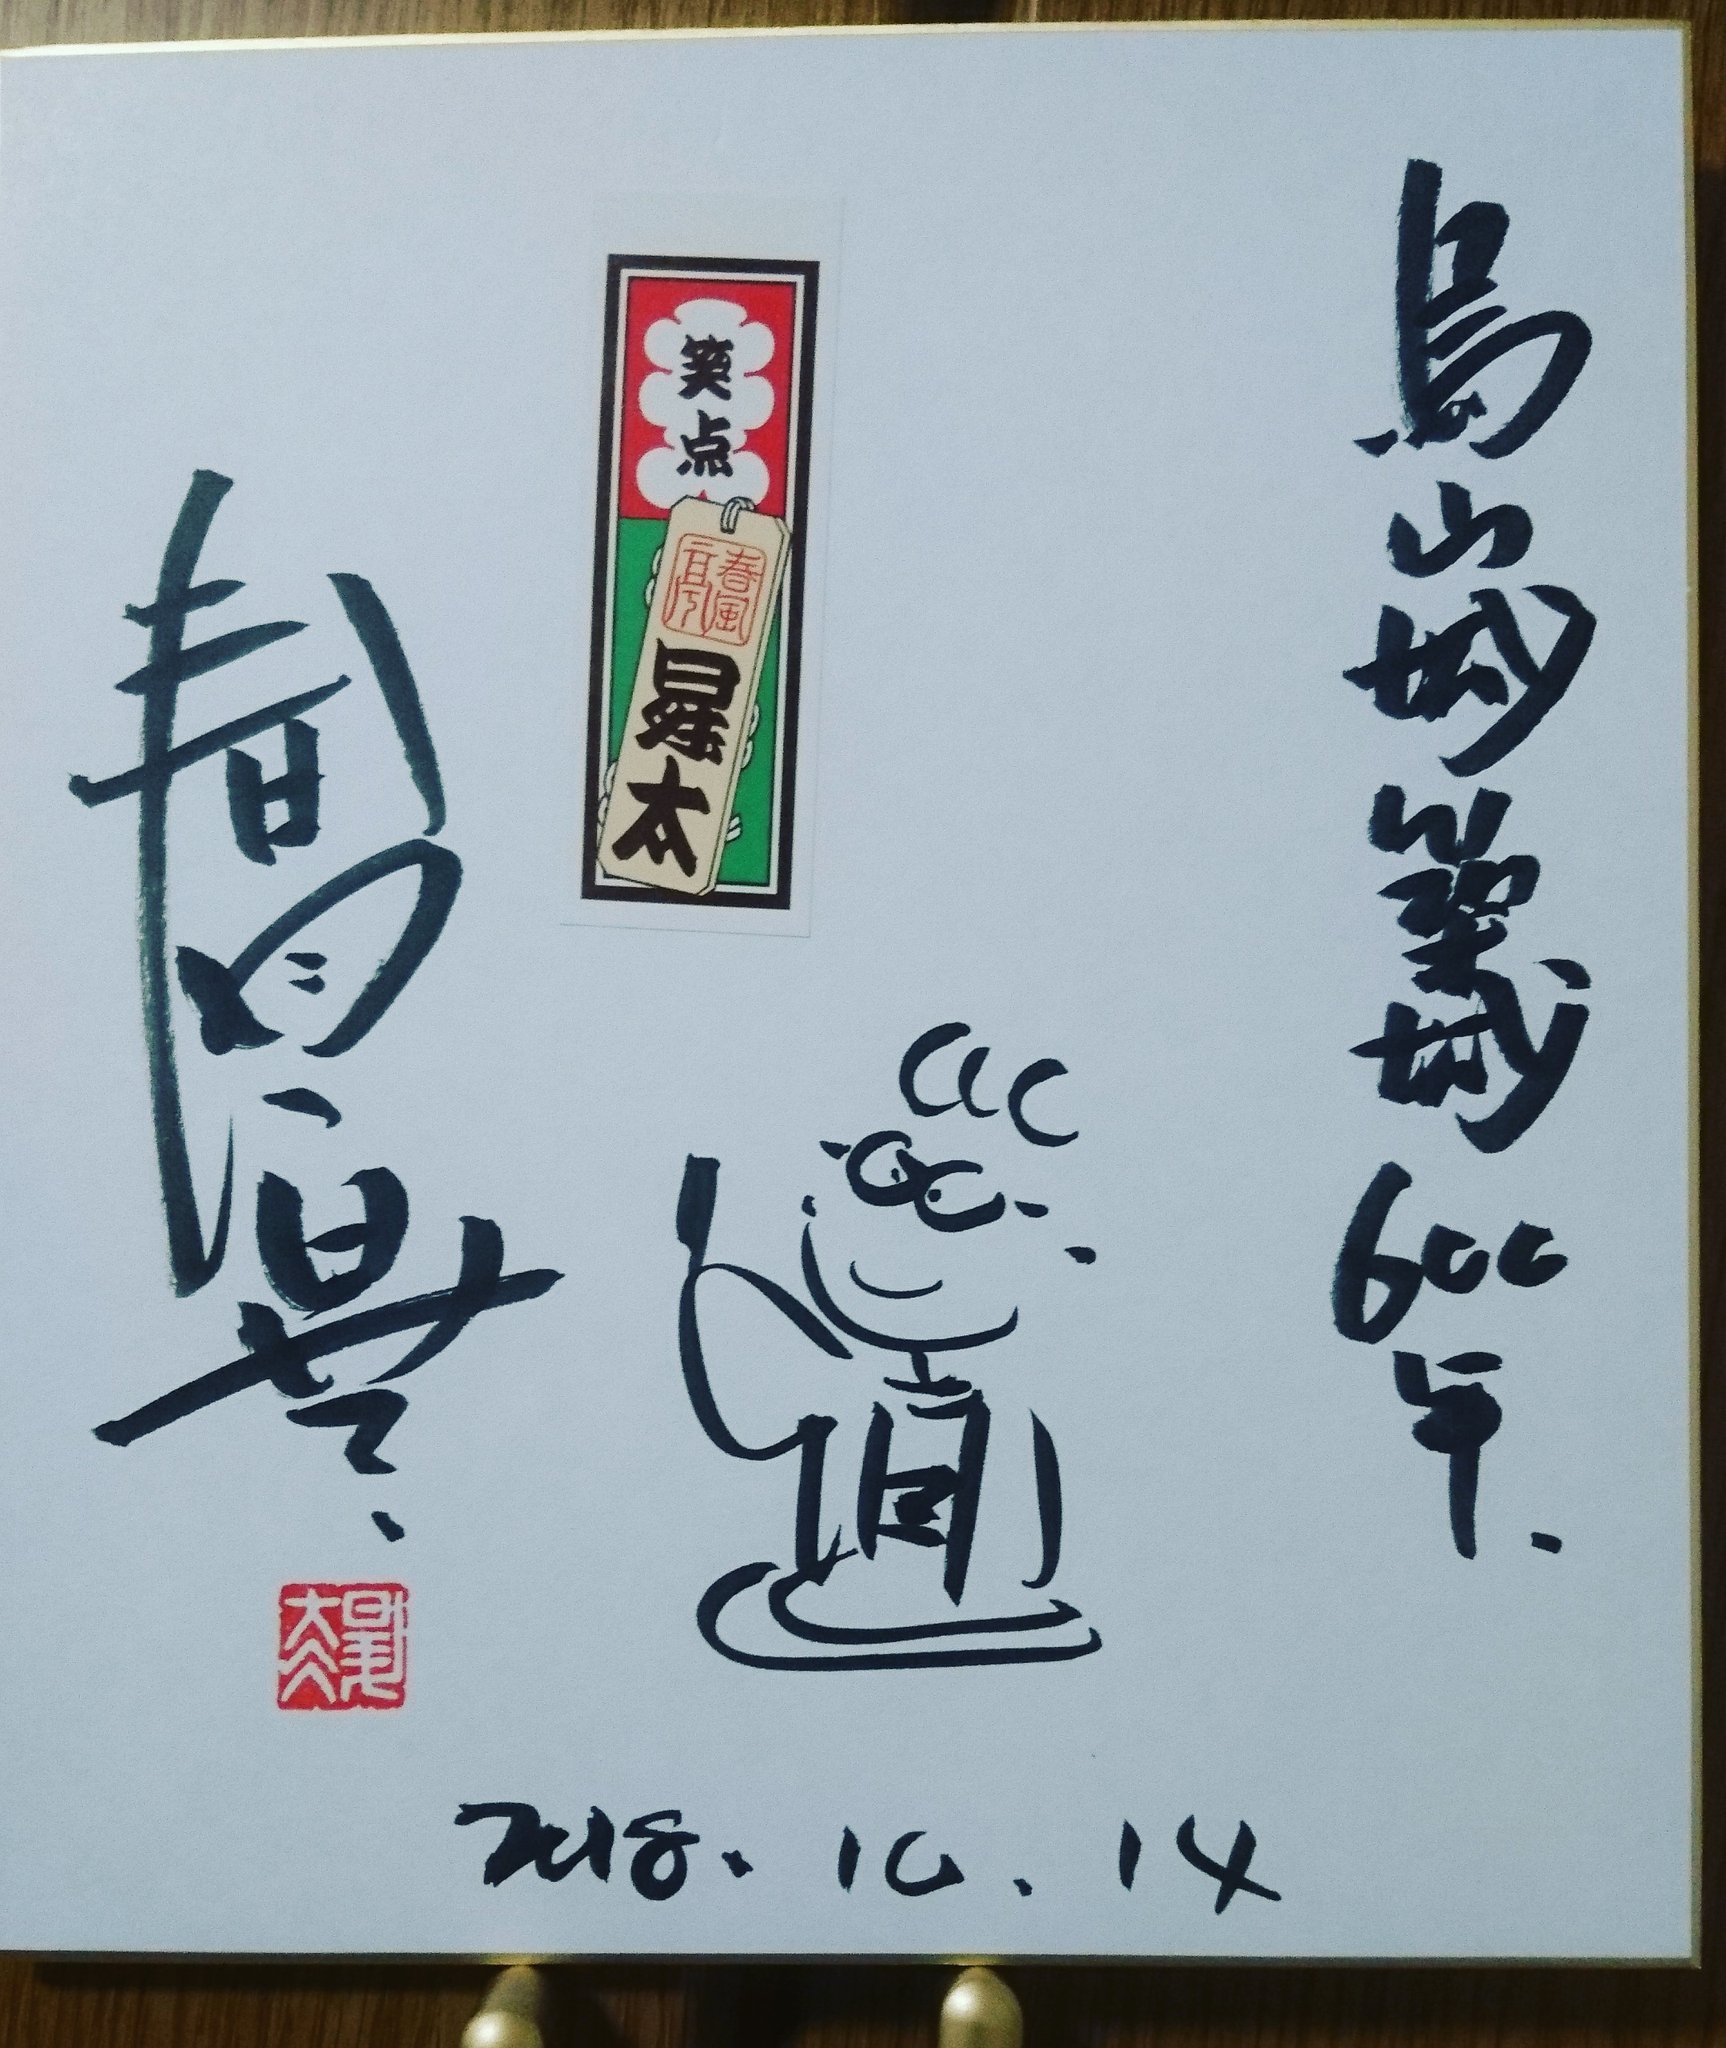 烏山城築城600年.
笑点
春風亭
昇太
春風亭昇太
昇太
2018.10.14